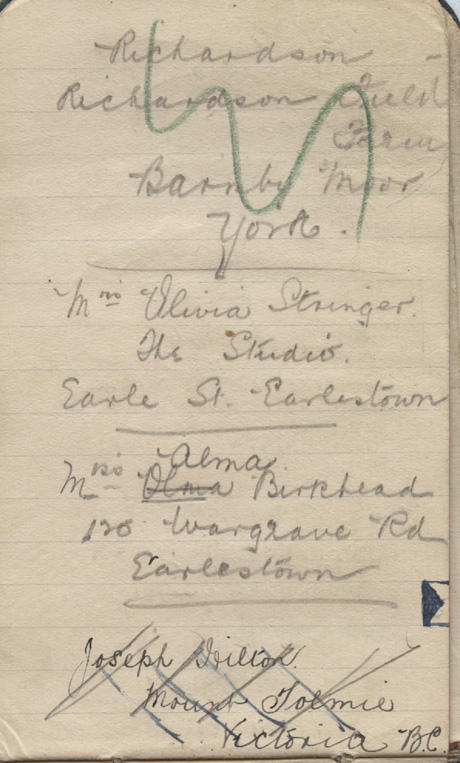 Richardson -
Richardson Field
Farm
Barnby Moor
York.
Mrs Olivia Stringer.
The Studio.
Earle St. Earlestown
Alma
Miss Olma Birkhead
120 Wargrave Rd
Earlestown
Joseph Hilton.
Mount Tolmie
Victoria B.C.